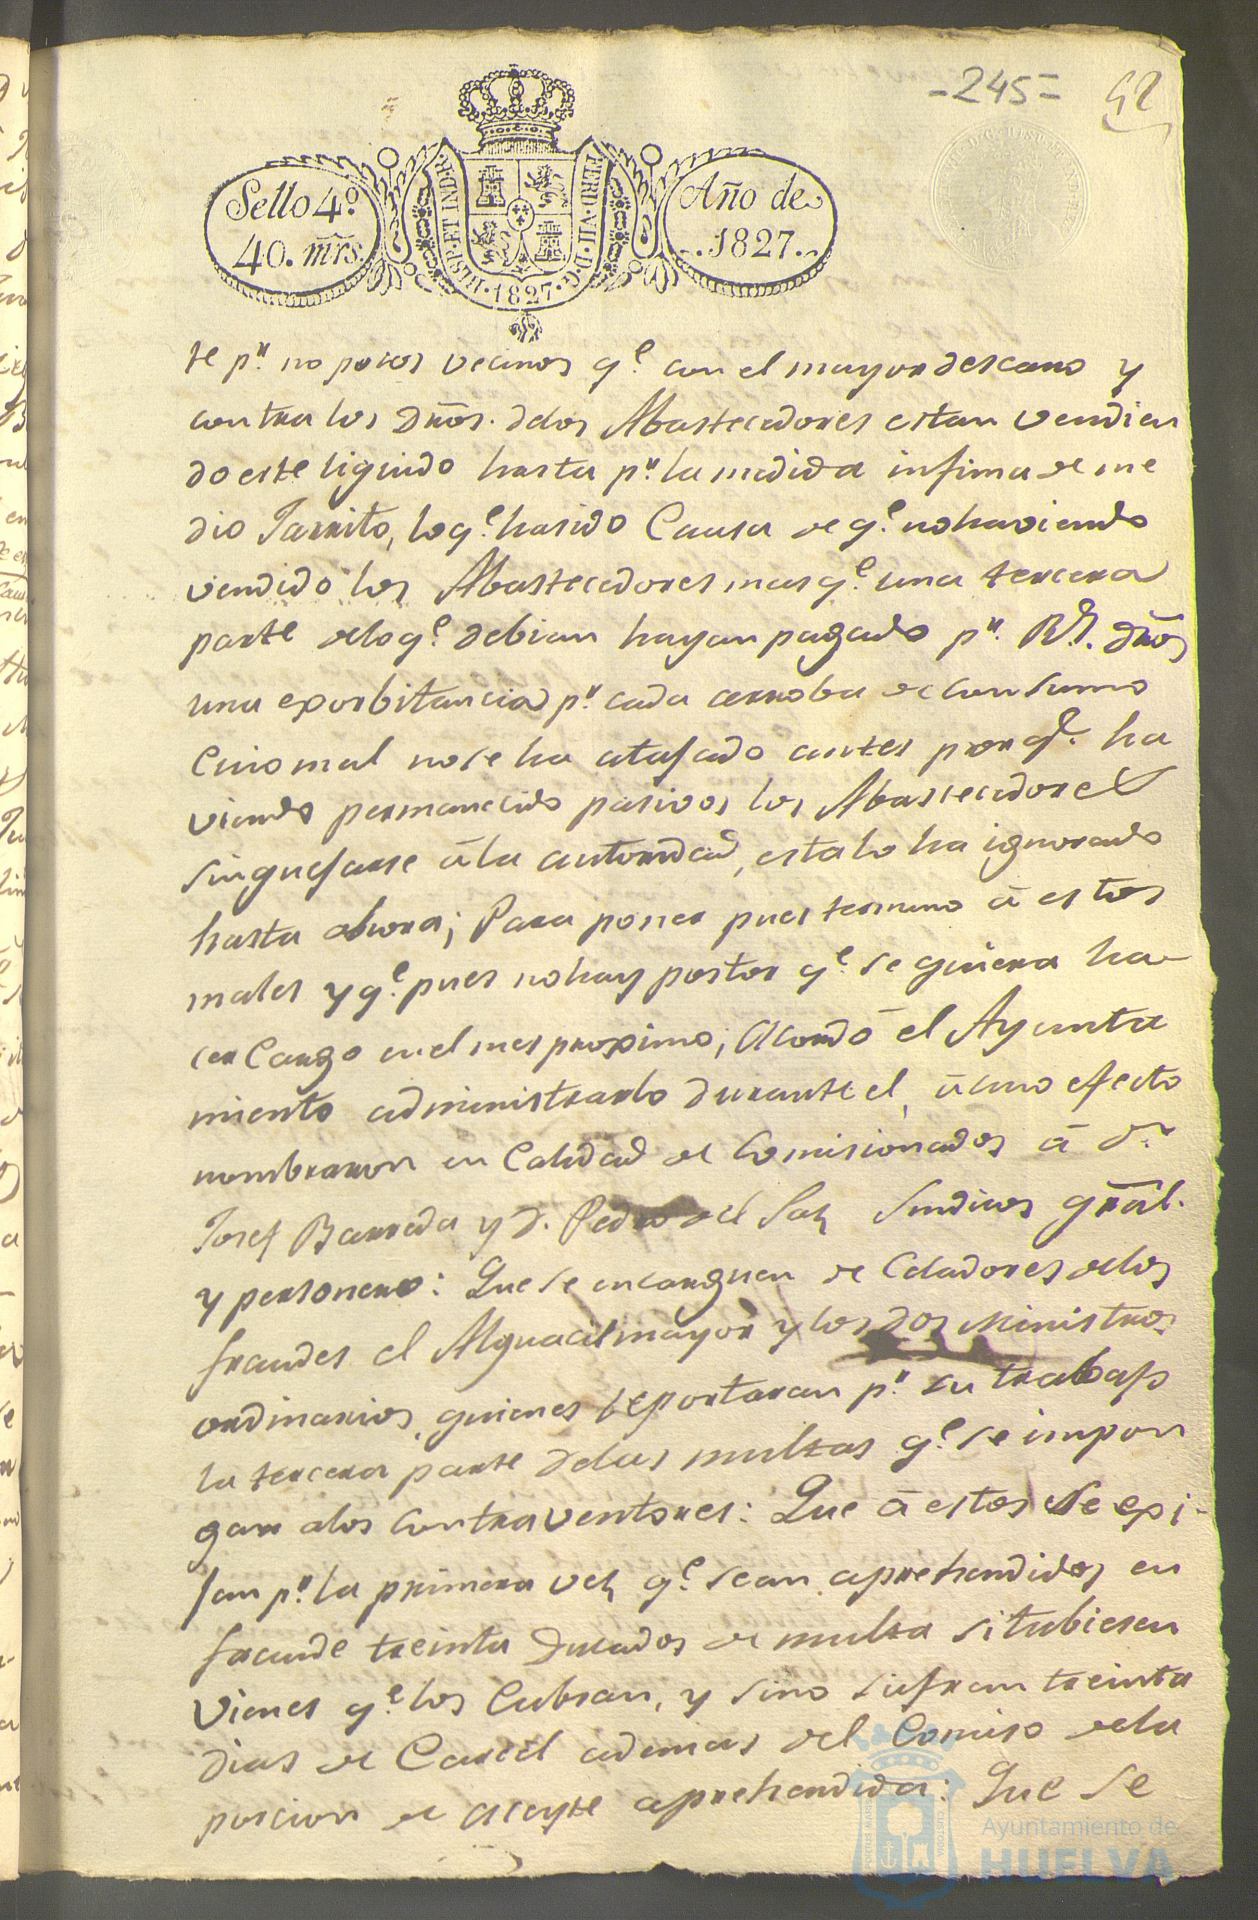 -245- 42
Sello 4º
40. mrs.
HISP. ET IND. R. FERD. VII. D. G. 1827
Año de
1827.
te pr. no pocos vecinos qe. con el mayor descaro y
contra los Dros. delos Abastecedores estan vendien
do este liquido hasta pr. la medida infima de me
dio Jarrito, lo qe. ha sido Causa de qe. no haviendo
vendido los Abastecedores mas qe. una tercera
parte delo qe. debian hayan pagado pr. Rs. dros
una exorbitancia pr. cada arroba de Consumo
Cuio mal no se ha atajado antes porqe. ha
viendo permanecido pasivos los Abastecedores
sin quejarse á la autoridad, esta lo ha ignorado
hasta ahora; Para poner pues termino á estos
males y qe. pues no hay postor qe. se quiera ha-
cer Cargo en el mes proximo; Acordó el Ayunta
miento administrarlo durante el, á cuio efecto
nombraron en Calidad de Comisionados á Dn.
Josef Barreda y D. Pedro del Saz Sindicos gral.
y personero: Que se encarguen de Celadores delos
fraudes el Alguacil mayor y los dos Ministros
ordinarios, quienes reportaran pr. su trabajo
la tercera parte delas multas qe. se impon
gan alos Contraventores: Que á estos se exi-
jan pr. la primera vez qe. sean aprehendidos en
fraude treinta Ducados de multa si tubiesen
vienes qe. los Cubran, y sino sufran treinta
dias de Carcel ademas del Comiso dela
porcion de aceyte aprehendida: Que se
Ayuntamiento de
HUELVA